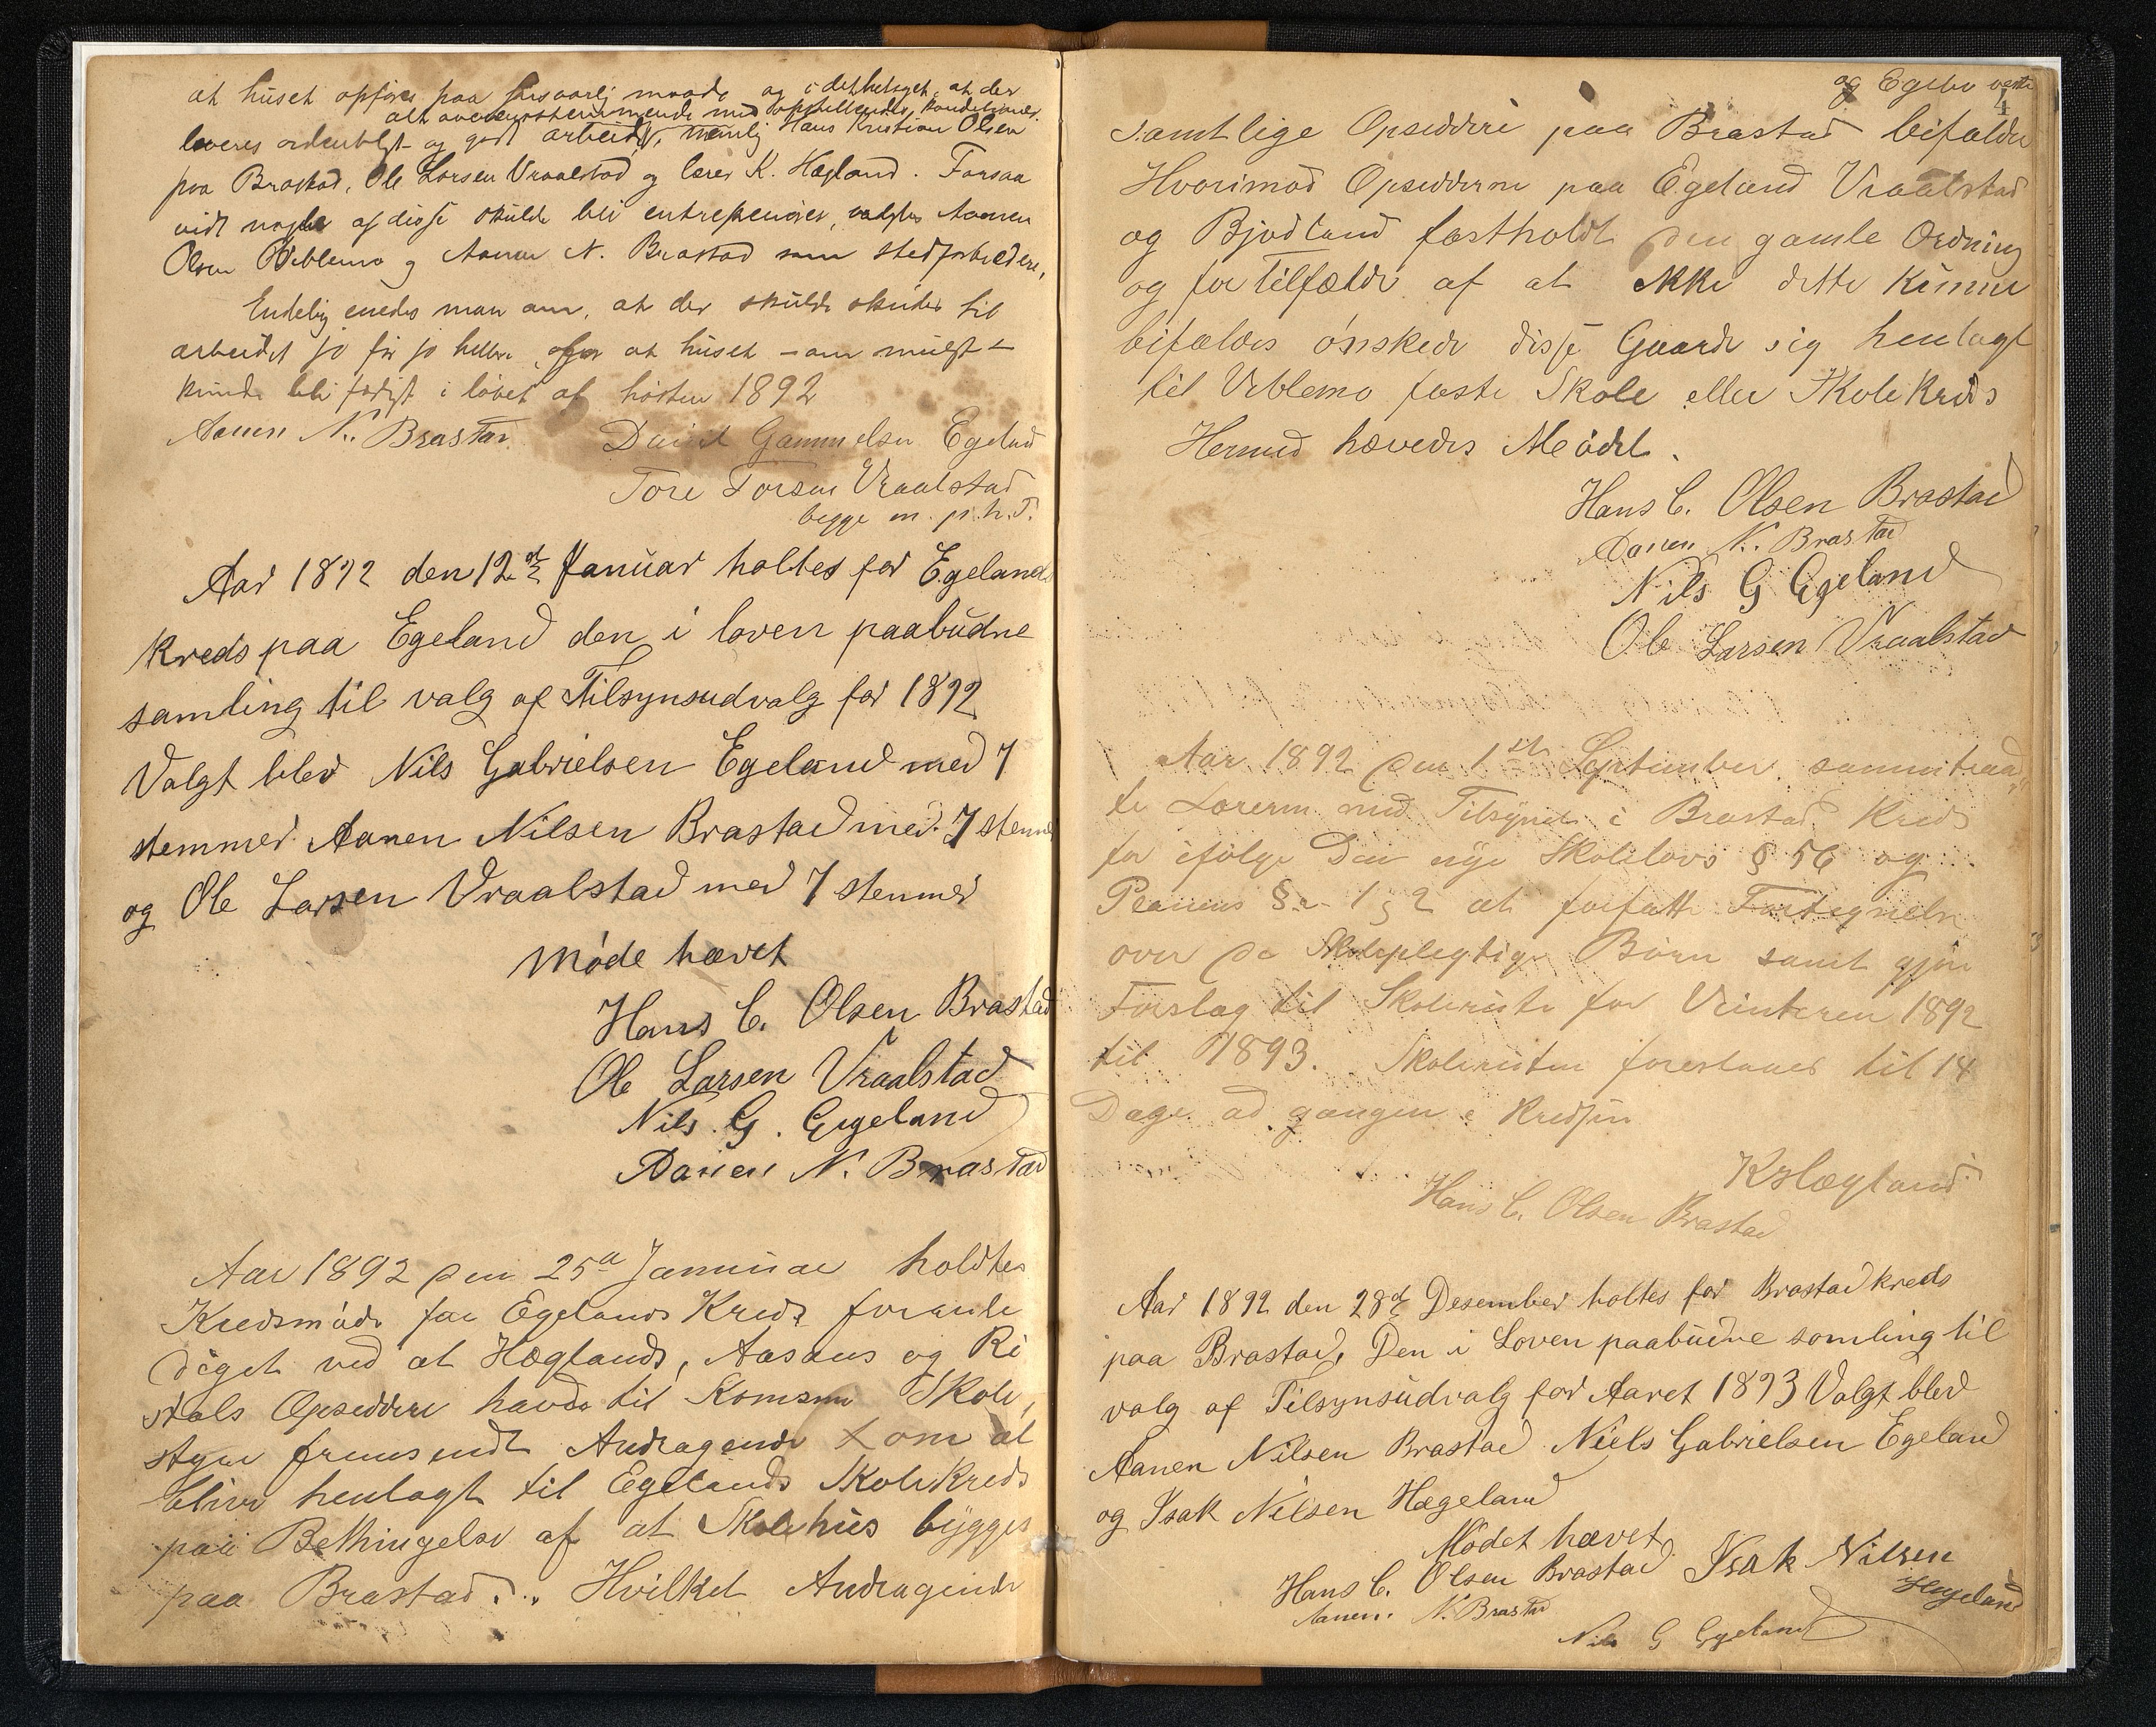 at huset opføres paa forsvarlig maade og i det hele taget, at der
alt overensstemmende med opstillende konditioner.
leveres ordentligt og godt arbeide, nemlig Hans Kristian Olsen
paa Brastad, Ole Larsen Vraalstad og lærer K. Hægland. Forsaa
vidt nogle af disse skulde bli entreprenører, valgtes Aanen
Olsen Veblemo og Aanen N. Brastad som stedfortrædere.
Endelig enedes man om, at der skulde skrides til
arbeidet jo før jo heller, at huset - om muligt -
kunde bli færdigt i løbet af høsten 1892
Aanen N. Brastad. David Gammelsen Egeland
Tore Torsen Vraalstad
begge m. p. h. P.
Aar 1892 den 12te Januar holtes for Egelands
Kreds paa Egeland den i loven paabudne
samling til valg af Tilsynsudvalg for 1892
Valgt blev Nils Gabrielsen Egeland med 7
stemmer. Aanen Nilsen Brastad med. 7 stemmer
og Ole Larsen Vraalstad med 7 stemmer
Møde hævet
Hans C. Olsen Brastad
Ole Larsen Vraalstad
Nils. G. Egeland
Aanen N. Brastad
Aar 1892 den 25de Januar holdtes
Kredsmøde for Egelands Kreds foranle
diget ved at Hæglands, Aasens og Ri
stals Opsiddere havde til Komsun Skole,
styre fremsendt Andragende om at
blive henlagt til Egelands Skolekreds
paa Bethingelse af at Skolehus bygges
paa Brastad. Hvilket Andragende
og Egebo vestre
4
samtlige Opsiddere paa Brastad bifalder
Hvorimod Opsidderne paa Egeland Vraalstad
og Bjodland fastholdt den gamle Ordning
og for Tilfælde af at ikke dette kunne
bifaldes ønskede disse Gaarde sig henlagt
til Veblemo faste Skole eller Skolekreds
Hermed hævedes Mødet.
Hans C. Olsen Brastad
Aanen N. Brastad
Nils G Egeland
Ole Larsen Vraalstad
Aar 1892 den 1ste September sammentraad
te Læreren med Tilsynet i Brastad Kreds
for ifølge Den nye Skolelovs § 56 og
Planens § 1 og 2 at forfatte Fortegnelse
over de Skolepligtige Børn samt gjøre
Forslag til Skoleruten for Vinteren 1892
til 1893. Skoleruten foreslaaes til 14
Dage ad gangen i Kredsen
K Hægland
Hans C. Olsen Brastad
Aar 1892 den 28de Desember holtes for Brastad kreds
paa Brastad, Den i Loven paabudne samling til
valg af Tilsynsudvalg for Aaret 1893 Valgt blev
Aanen Nilsen Brastad Niels Gabrielsen Egeland
og Isak Nilsen Hægeland
Mødet hævet
Hans C. Olsen Brastad Isak Nilsen
Hægeland
Aanen. N. Brastad
Nils G Egeland